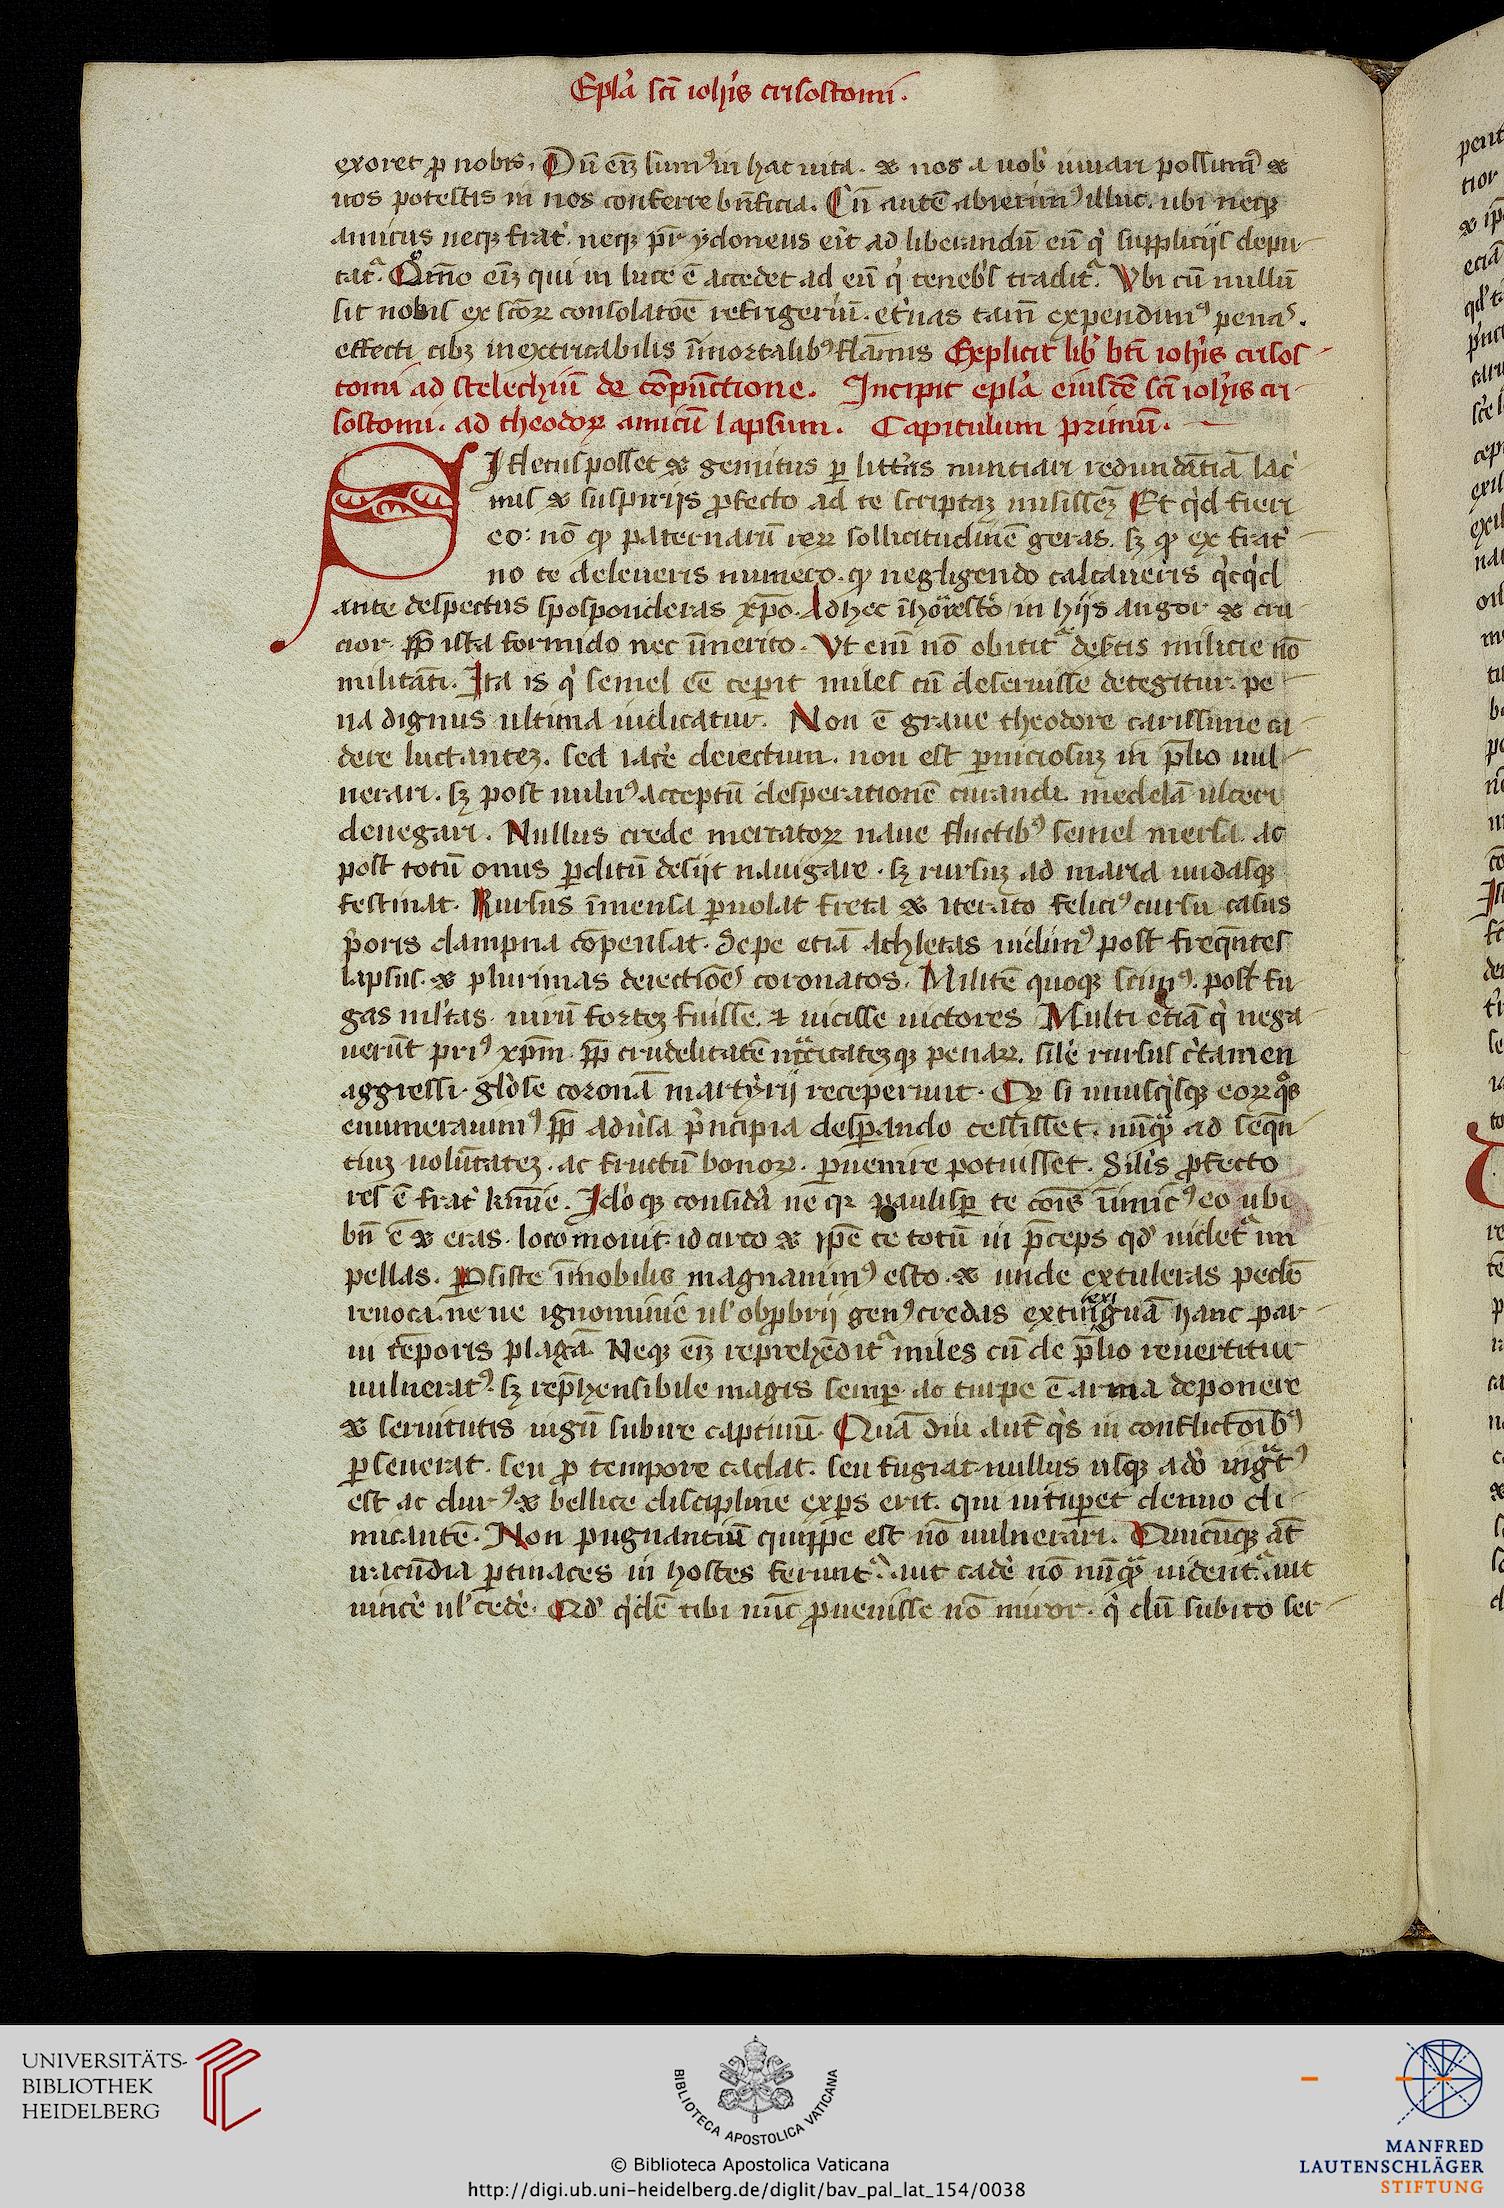 Epl'a sc̄i ioh'is crisostomi.
exoret ꝓ nobis. Dū eīz sum⁹ in hac uita. & nos a uob' iuuari possum⁹ &
uos potestis in nos conferre bn̄ficia. Cū autē abierim⁹ illuc. ubi neqꝫ
amicus neqꝫ frat'. neqꝫ pr̄ ydoneus eit ad liberandū eū q' suppliciis depu
tat'. Qm̄o eīz qui in luce ē accedet ad eū q' teneb's tradit'. Vbi cū nullū
sit nobis ex sc̄oꝝ consolatōe refrigeriū. et'nas tam̄ expendim⁹ penas.
effecti cibꝫ inextricabilis īmortalib⁹ flāmis Explicit lib' bt̄i ioh'is crisos
tomi ad stelechiū de cōpūctione. Incipit epl'a eiusdē sc̄i ioh'is cri
sostomi. ad theodoꝝ amicū lapsum. Capitulum primū.
SI fletus posset & gemitus ꝑ litt'as nunciari redundātiā lac'
mis & suspiriis ꝓfecto ad te scriptaꝫ misisseꝫ Et q'd fieri
eo: nō qꝫ paternarū reꝝ sollicitudinē geras. sꝫ qꝫ ex frat'
no te deleueris numero. qꝫ negligendo calcaueris q'cq'd
ante despectus sposponderas xp̄o. Ad hec īhoresco in hijs angor & cru
cior. ꝓp ista formido nec īmerito. Vt eni nō obicit' defc̄is milicie nō
militāti. Ita is q' semel eē ceꝑit miles cū deseruisse detegitur. pe
na dignus ultima iudicatur. Non ē graue theodore carissime ca
dere luctanteꝫ. sed iacē deiectum. non est ꝑniciosuꝫ in p̄lio uul
nerari. sꝫ post uuln⁹ acceptū desperationē curandi. medelā ulceri
denegari. Nullus crede mercatoꝝ naue fluctib⁹ semel mersa. ac
post totū onus ꝑditū desiit nauigare. sꝫ rursuꝫ ad maria undasqꝫ
festinat. Rursus īmensa ꝑuolat freta & iterato felici⁹ cursu casus
p'oris dampna cōpensat. Sepe etiā athletas uidim⁹ post freqn̄tes
lapsus. & plurimas deiectiōes coronatos. Militē quoqꝫ scim⁹. post fu
gas ml'tas. uirū forteꝫ fuisse. & uicisse uictores Multi etiā q' nega
uerūt pri⁹ xp̄m. ꝓp crudelitatē penaꝝ. rursus c'tamen
aggressi. gl'ose coronā martyrij receperunt. si unusq'sqꝫ eoꝝ q°s
enumerauim⁹ ꝓp adu'sa p'ncipia desꝑando cessisset. nūq̄ ad seqn̄
tiuꝫ uolūtateꝫ. ac fructū bonoꝝ. ꝑuenire potuisset. Sil'is ꝓfecto
res ē frat' Id'oqꝫ consid'a ne qꝛ paulisꝑ te cōis inimic⁹ eo ubi
bn̄ ē & eras. loco mouit. idcirco & ip̄e te totū in p̄ceps qd' uidet' im
pellas. Ꝑsiste īmobilis magnanim⁹ esto. & unde extuleras pedē
reuoca. ne ue ignominie ul' obꝓbrij gen⁹ credas exiguā hanc par
ui tēporis plagā Neqꝫ eīz reprehēdit' miles cū de p̄lio reuertitur
uulnerat⁹. sꝫ rep̄hensibile magis semꝑ. ac turpe ē arma deponere
& seruitutis iugū subire captiuū. Quā diu aut̄ q's in conflictōib⁹
ꝑseuerat. seu ꝓ tempore cadat. seu fugiat nullus usqꝫ ad'o īgrat⁹
est ac dur⁹. & bellice discipline exꝑs erit. qui uituꝑet denuo di
micantē. Non pugnantiū quippe est nō uulnerari. Quicūqꝫ at̄
iracūdia ꝑtinaces in hostes ferunt'. aut cad'e nō nūq̄ uident'. aut
uinc'e ul' ced'e. Qd' q'dē tibi nūc ꝓuenisse nō miror. q' dū subito ser
UNIVERSITÄTS-
BIBLIOTHEK
HEIDELBERG
BIBLIOTECA APOSTOLICA VATICANA
© Biblioteca Apostolica Vaticana
http://digi.ub.uni-heidelberg.de/diglit/bav_pal_lat_154/0038
MANFRED
LAUTENSCHLÄGER
STIFTUNG